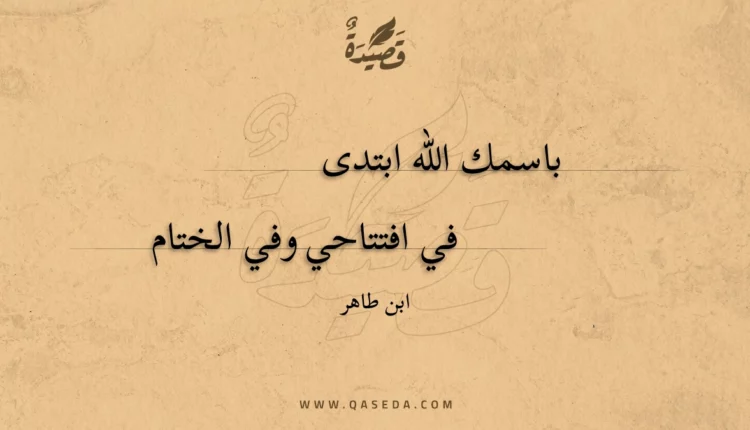 قَصِيْدَةٌ
باسمك الله ابتدى
في افتتاحي وفي الختام
ابن طاهر
WWW.QASEDA.COM